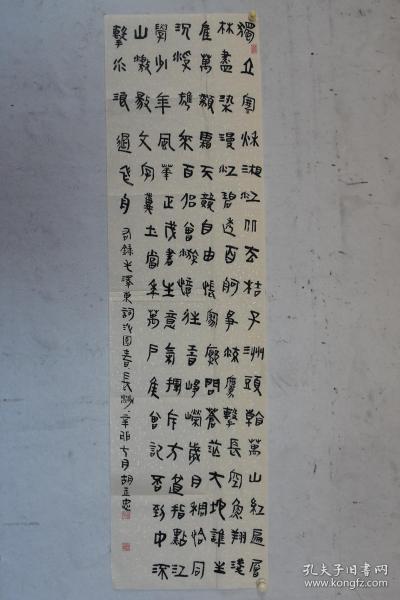 獨立寒秋湘江北去桔子洲頭看萬山紅遍層
林盡染漫江碧透百舸爭流鷹擊長空魚翔淺
底萬類霜天競自由悵寥廓問蒼茫大地誰主
沉浮攜來百侶曾遊憶往昔崢嶸歲月稠恰同
學少年風華正茂書生意氣揮斥方遒指點江
山激揚文字糞土當年萬戶侯曾記否到中流
擊水浪遏飛舟
錄毛澤東詞沁園春長沙辛卯七月胡立忠
孔夫子旧书网
kongfz.com